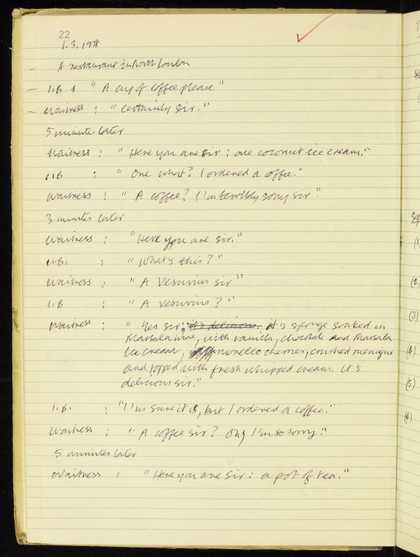 22
1.3.1978
A restaurant in North London
I.B. : "A cup of coffee please"
Waitress : "Certainly Sir."
5 minutes later
Waitress : "Here you are Sir : one coconut ice cream."
I.B. : "One what? I ordered a coffee."
Waitress : "A coffee? I'm terribly sorry Sir"
3 minutes later
Waitress : "Here you are Sir."
I.B. : "What's this?"
Waitress : "A Vesuvius Sir"
I.B. : "A Vesuvius?"
Waitress : "Yes Sir, it's delicious. It's sponge soaked in
Marsala wine, with vanilla, chocolate and Marsala
Ice cream, morello cherries, crushed meringue
and topped with fresh whipped cream. It's
delicious Sir."
I.B. : "I'm sure it is, but I ordered a coffee."
Waitress : "A coffee Sir? Oh, I'm so sorry."
5 minutes later
Waitress : "Here you are Sir : a pot of tea."